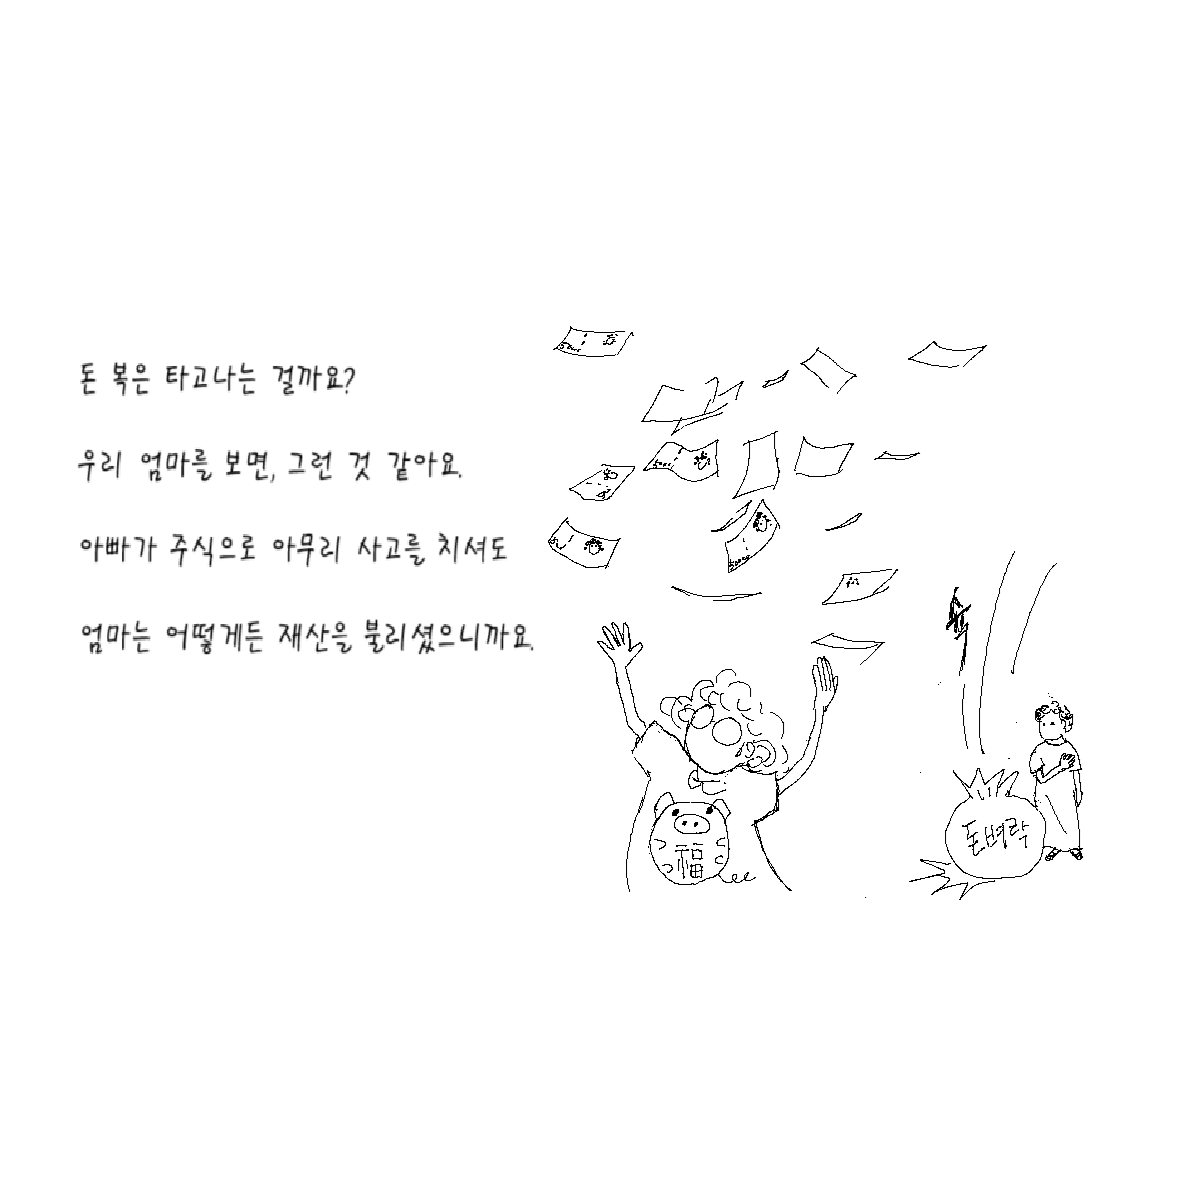 돈 복은 타고나는 걸까요?
우리 엄마를 보면, 그런 것 같아요.
아빠가 주식으로 아무리 사고를 치셔도
엄마는 어떻게든 재산을 불리셨으니까요.
福
돈벼락